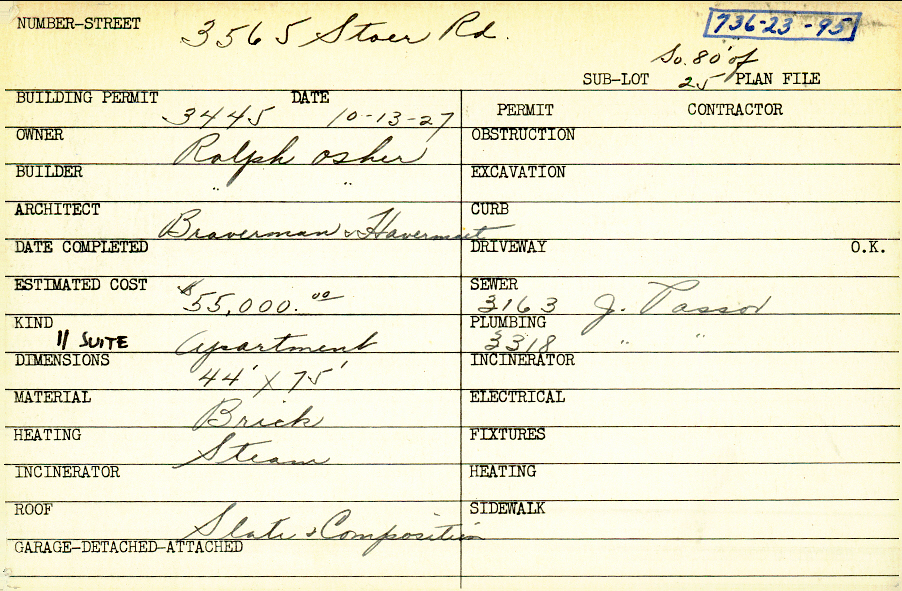 NUMBER-STREET 3565 Stoer Rd. 736-23-95
So. 80' of
SUB-LOT 25 PLAN FILE
BUILDING PERMIT 3445 DATE 10-13-27
PERMIT CONTRACTOR
OWNER Ralph Osher
OBSTRUCTION
BUILDER " "
EXCAVATION
ARCHITECT Braverman & Havermaet
CURB
DATE COMPLETED
DRIVEWAY O.K.
ESTIMATED COST $55,000.00
SEWER 3163 J. Passov
KIND 11 SUITE Apartment
PLUMBING 3318 " "
DIMENSIONS 44' X 75'
INCINERATOR
MATERIAL Brick
ELECTRICAL
HEATING Steam
FIXTURES
INCINERATOR
HEATING
ROOF Slate & Composition
SIDEWALK
GARAGE-DETACHED-ATTACHED